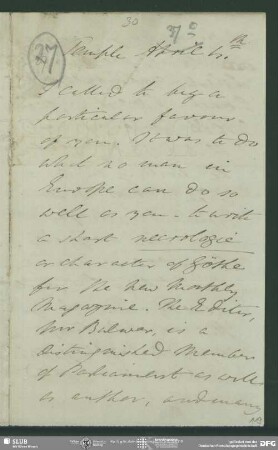 30
37
37.
Temple April 4th
I called to beg a
particular favour
of you. It was to do
what no man in
Europe can do so
well as you. to write
a short necrologie
or character of Göthe
for the New Monthly
Magazine. The Editor,
Mr Bulwer, is a
distinguished Member
of Parliament as well
as author, and many
SLUB
DFG